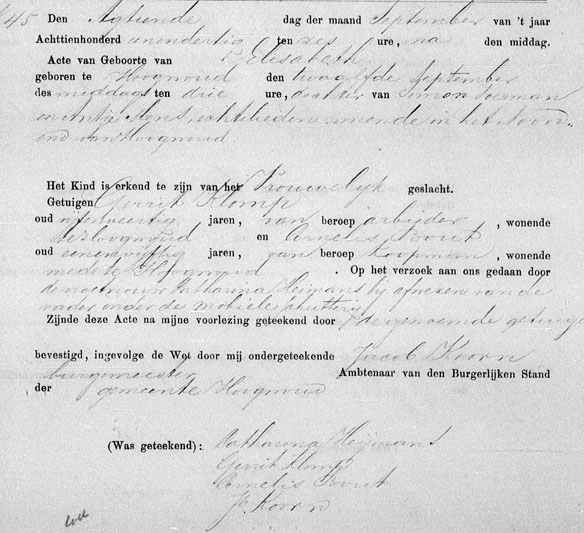 Den Agtiende dag der maand September van 't jaar
Achttienhonderd eenendertig ten zes ure, na den middag.
Acte van Geboorte van Elisabeth
geboren te Hoogwoud den twaalfde September
des middags ten drie ure, dochter van Simon
en Antje echtelieden wonende in het Noord
end van Hoogwoud
Het Kind is erkend te zijn van het Vrouwelijk geslacht.
Getuigen Gerrit Klomp
oud vijfenveertig jaren, van beroep arbeijder , wonende
te Hoogwoud en Cornelis Bout
oud eenenvijftig jaren, van beroep Koopman , wonende
mede te Hoogwoud . Op het verzoek aan ons gedaan door
de vroedvrouw Catharina Heijmans bij afwezen van de
vader onder de mobiele schutterij
Zijnde deze Acte na mijne voorlezing geteekend door de genoemde getuigen
bevestigd, ingevolge de Wet door mij ondergeteekende Jacob Koorn
burgemeester Ambtenaar van den Burgerlijken Stand
der gemeente Hoogwoud
(Was geteekend): Catharina Heijmans
Gerrit Klomp
Cornelis Bout
Jb. Koorn